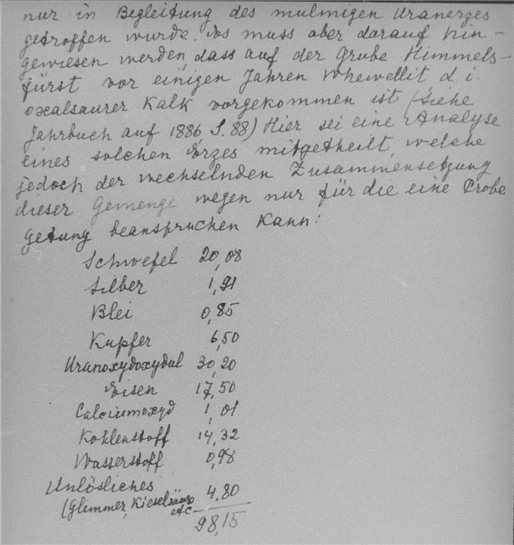 nur in Begleitung des mulmigen Uranerzes
getroffen wurde. Es muss aber darauf hin-
gewiesen werden, dass auf der Grube Himmels-
fürst vor einigen Jahren Whewellit d. i.
oxalsaurer Kalk vorgekommen ist. (Siehe
Jahrbuch auf 1886 S. 88) Hier sei eine Analyse
eines solchen Erzes mitgetheilt, welche
jedoch der wechselnden Zusammensetzung
dieser Gemenge wegen nur für die eine Probe
Geltung beanspruchen kann:
Schwefel 20,08
Silber 1,91
Blei 0,85
Kupfer 6,50
Uranoxydoxydul 30,20
Eisen 17,50
Calciumoxyd 1,01
Kohlenstoff 14,32
Wasserstoff 0,98
Unlösliches
(Glimmer, Kieselsäure etc 4,80
98,15